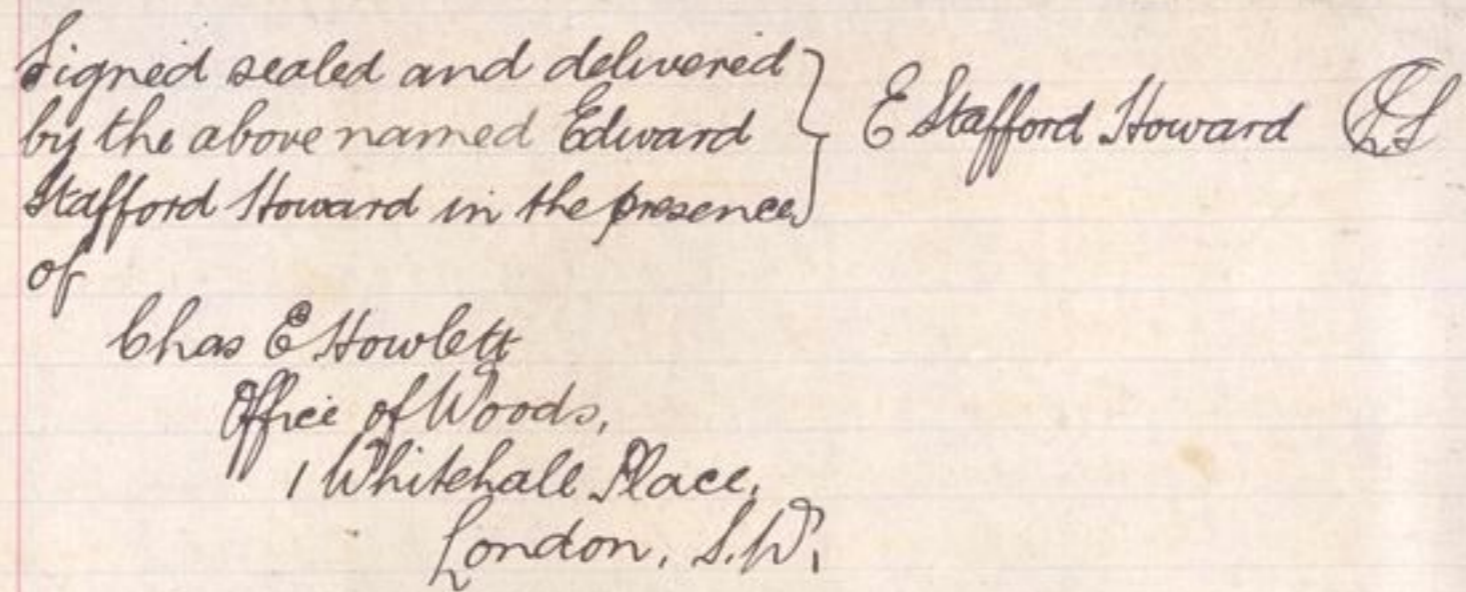 Signed sealed and delivered
by the above named Edward
Stafford Howard in the presence
of
E Stafford Howard LS
Chas E Howlett
Office of Woods,
1 Whitehall Place,
London, S.W.